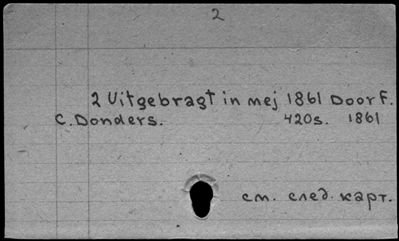 2
2 Uitgebragt in mej 1861 Door F.
C. Donders. 420s. 1861
см. след. карт.